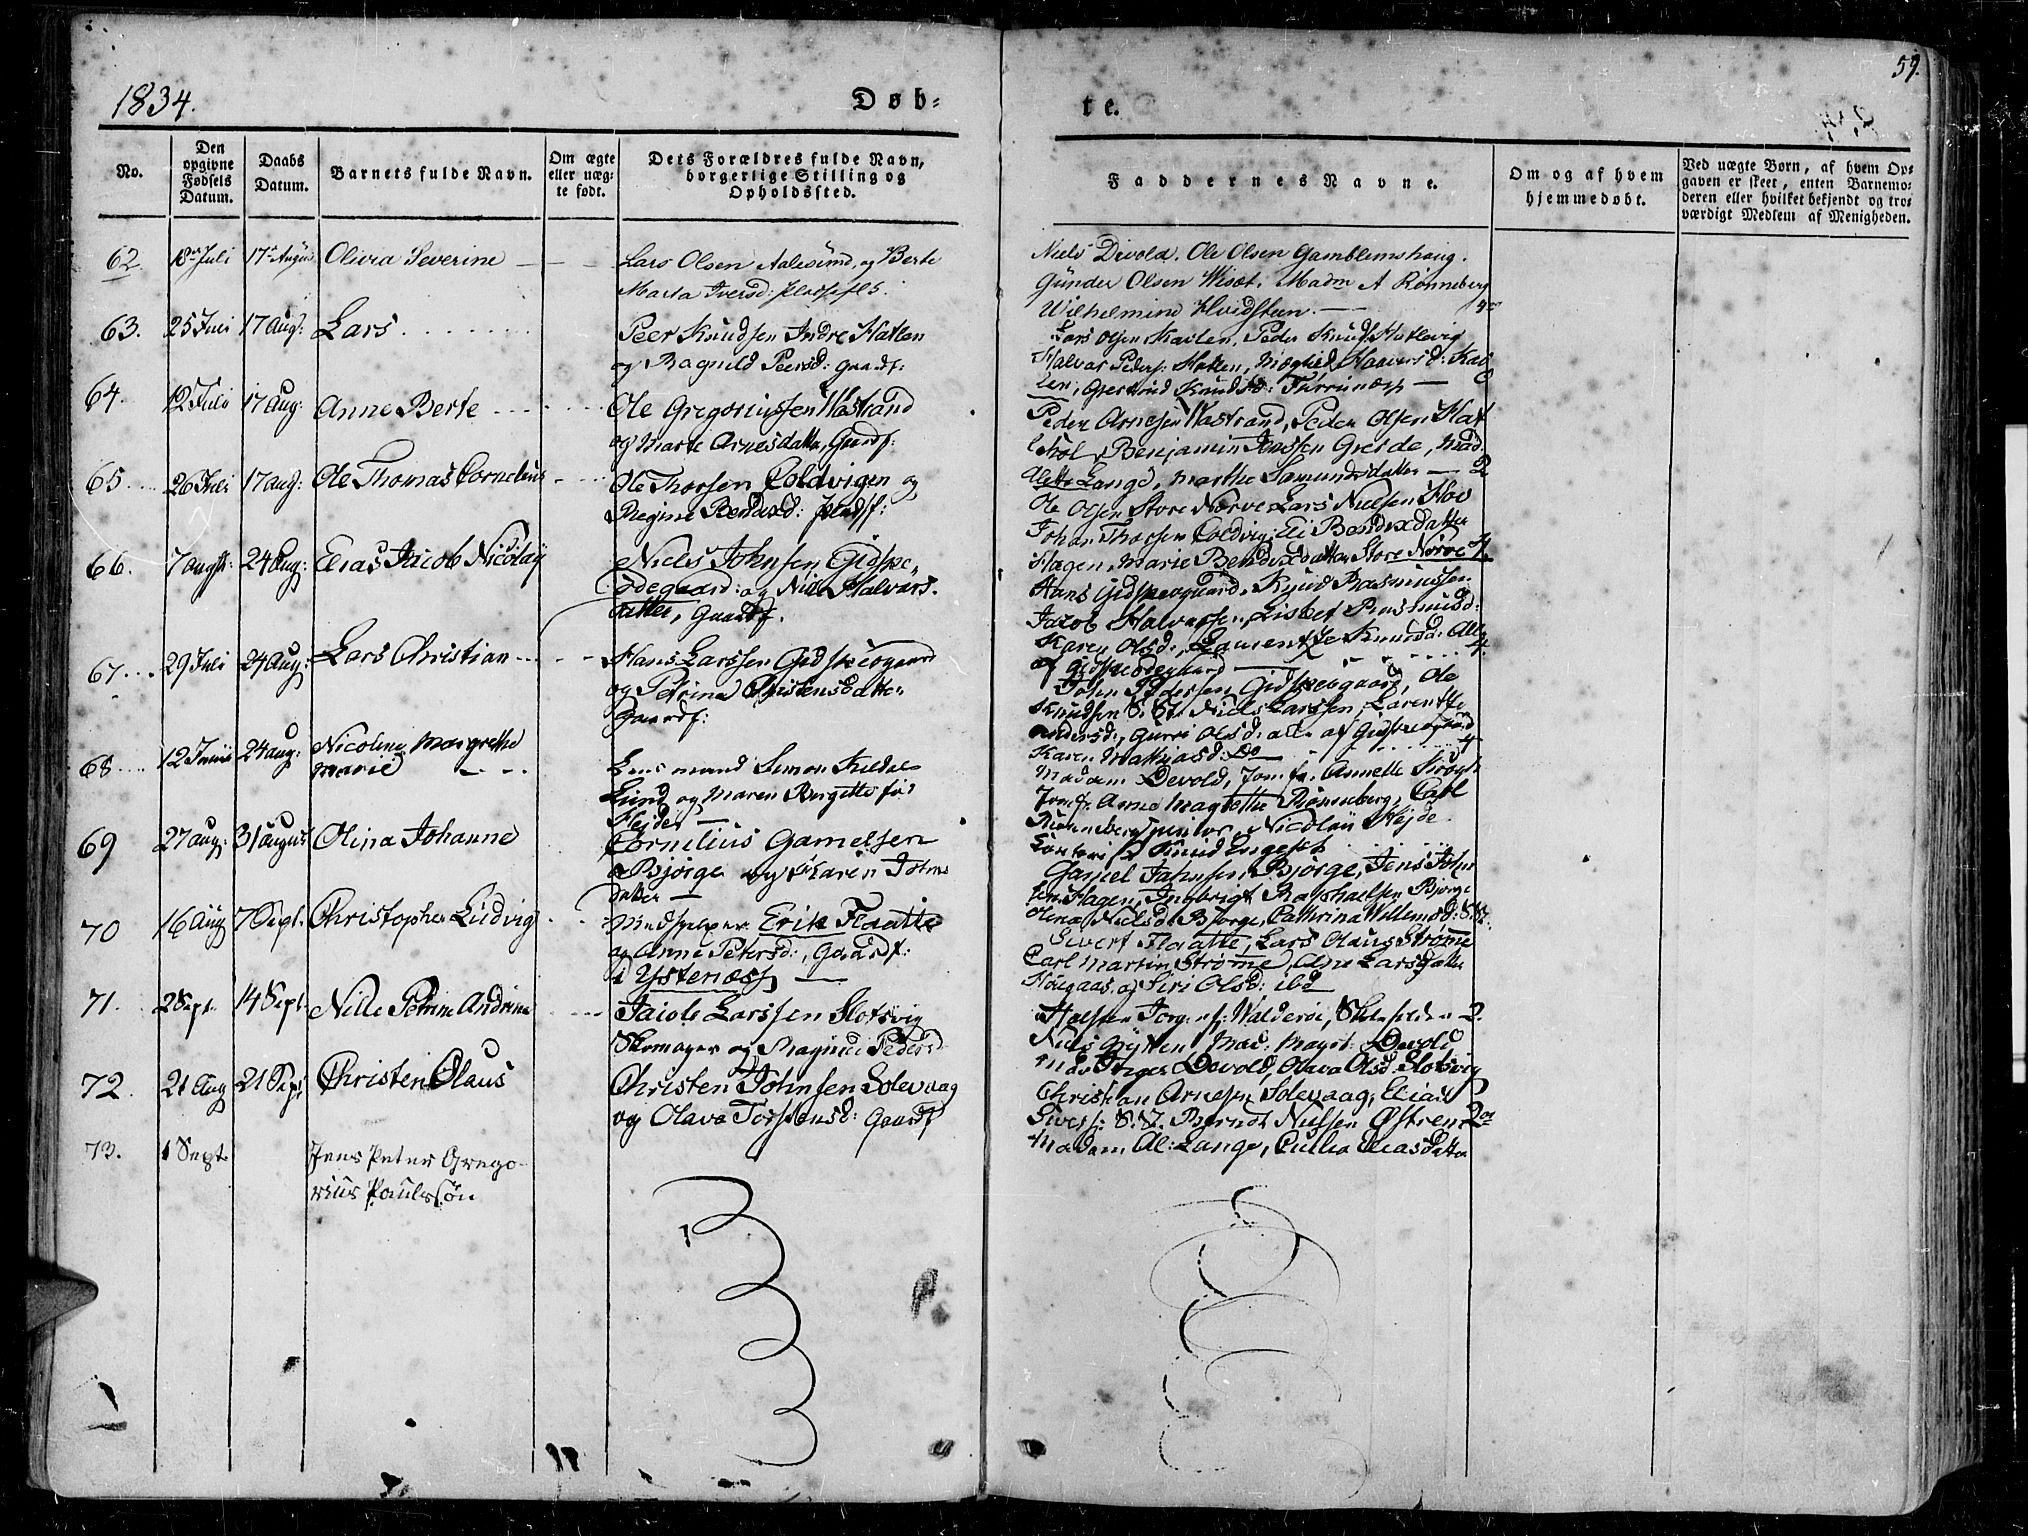 1834.
Døb-
te.
59.
No.
Den opgivne Fødsels Datum.
Daabs Datum.
Barnets fulde Navn.
Om ægte eller uægte født.
Dets Forældres fulde Navn, borgerlige Stilling og Opholdssted.
Faddernes Navne.
Om og af hvem hjemmedøbt.
Ved uægte Børn, af hvem Opgaven er skeet, enten Barnemoderen eller hvilket bekjendt og troværdigt Medlem af Menigheden.
62. 18de Juli 17de August Olivia Severine
Lars Olsen Aalesund, og Berte
Marta Iversd: pladsfolk.
Niels Devold. Ole Olsen Gamblemshaug.
Gunder Olsen Wiset. Madm A Rønneberg
Wilhelmine Hvidsteen.
63. 25 Juli 17 Aug: Lars
Peer Knudsen Indre Hatlen
og Ragnild Peersd: Gaardf:
Lars Olsen Hatlen, Peder Knuds Hatlevig
Halvar Peders: Hatlen,
Knudsd:
64. 12 Juli 17 Aug: Anne Berte
Ole Gregoriussen Wastrand
og Marte Arnesdatter, Gaardf:
Peder Arnesen Wastrand, Peder Olsen
Benjamin Jenssen Greide, Mad.
Lange, Marthe Samundsdatter 2
65. 26 Juli 17 aug: Ole Thomas Cornelius
Ole Thorsen Coldvigen og
Regine Bendixd: pladsf:
Ole Olsen Store Nørve Lars Nielsen Hov
Johan Thorsen Coldvig, Eli Bendixdatter
Hagen, Marie Bendixdatter Store Nørve 4.
66. 7 augst: 24 Aug: Elias Jacob Nicolay
Niels Johnsen Gidske-
ødegaard: og Nille Halvars-
datter, Gaardf.
Hans Gidskeøgaard. Knud Rasmussen
Jacob Halvorsen, Lisbet Rasmusd:
Karen Olsd:, Laurentze Knudsd. Alle
af Gidskeødegaard 4.
67. 29 Juli 24 Aug: Lars Christian
Hans Larssen Gidskeøgaard
og Petrina Christensdatter
Gaardf:
John Pedersen Gidskeøgaard, Ole
Knudsen S. St. Niels Larssen, Larentse
Andersd:, Gurri Olsd: alle af Gidskeøgaard
Karen Mathiasd: Do 4
68. 12 24 aug: Nicoline Margrethe
Marie
Lensmand Simon Kildal
Lund og Maren Birgitte fød
Hejde
Madam Devold, Jomfr. Annette Krogh
Jomfr. Anne Magrethe Rønneberg, Carl
Rønneberg junior, Nicolaii Hejde.
Knud Engeset
69 27 aug: 31 August Olina Johanne
Cornelius Gamelsen
Bjørge og Karen Johns
datter
Gamel Johnsen Bjørge, Jens John
sen Hagen, Ingebrigt Raphaelsen Bjørge
Olina Nielsd: Bjørge, Cathrina Willemsd: S. St.
70 16 Aug 7 Sept. Christopher Ludvig
Medhjelper Erik Flaatte
og Anne Petersd:, Gaardf:
i Ystenæss
Sivert Flaatte, Lars Olaus Strømme
Carl Martin Strømme, Ane Larsdatter
Hougaas og Siri Olsd: ibd
71. 2 Sept. 14 Sept. Nille Petrine Andrine
Jacob Larssen Slotsvig
Skomager og Magnild Peders
Niels Mad: Magrt: Devold
Mad Inger Devold, Olava Olsd: Slotsvig
72. 21 Aug 21 Sept Christen Olaus
Christen Johnsen Solevaag
og Olava Torstensd: Gaardf
Christian Arnesen Solevaag, Elias
Sivers: S. St. Berndt Nielsen Østrem
Madam Al: Lange, Eliasdatter
73. 1 Sept.
Jens Peter Grego-
rius Paulssøn